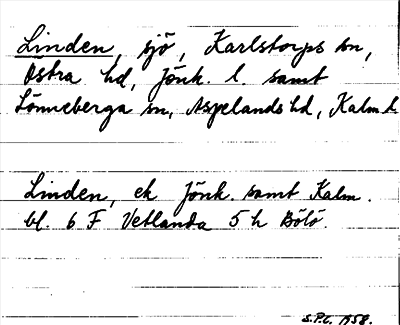 Linden, sjö, Karlstorps sn,
Östra hd, Jönk. l. samt
Lönneberga sn, Aspelands hd, Kalm. l.
Linden, ek Jönk. samt Kalm.
bl. 6 F Vetlanda 5 h Bölö.
S.P.C. 1958.